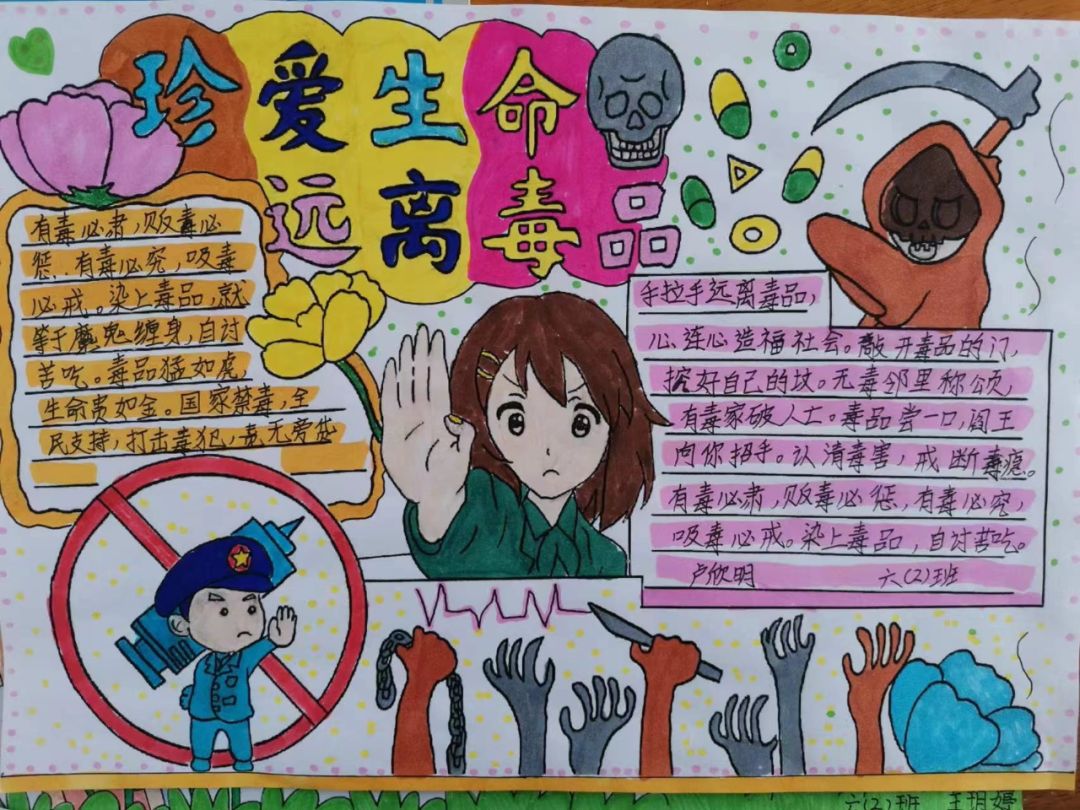 珍爱生命
远离毒品
有毒必肃,贩毒必
惩..有毒必究,吸毒
必戒。染上毒品,就
等于魔鬼缠身,自讨
苦吃。毒品猛如虎,
生命贵如金。国家禁毒,全
民支持,打击毒犯,责无旁贷
手拉手远离毒品,
心连心造福社会。敲开毒品的门,
挖好自己的坟。无毒邻里称颂,
有毒家破人亡。毒品尝一口,阎王
向你招手。认清毒害,戒断毒瘾。
有毒必肃,贩毒必惩,有毒必究,
吸毒必戒。染上毒品,自讨苦吃。
卢欣明 六(2)班
六(2)班